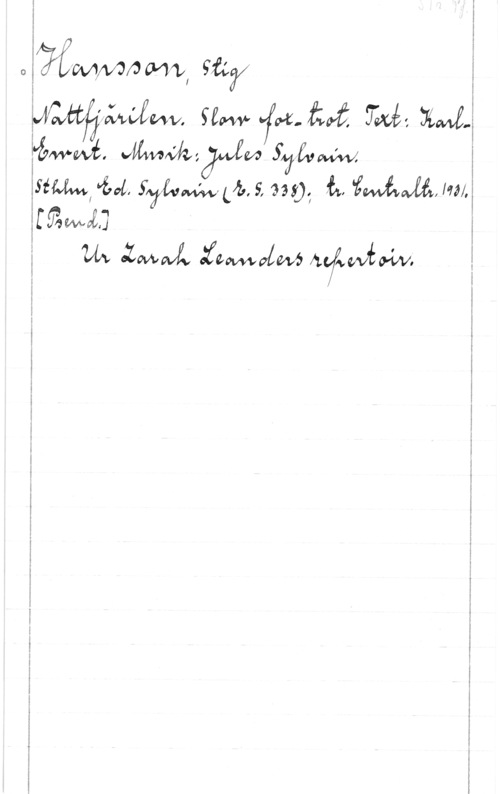 Hansson, Stig
Nattfjärilen. Slow fox-trot. Text: Karl-
Ewert. Musik: Jules Sylvain.
Sthlm, Ed. Sylvain (E. S. 338); tr. Centraltr. 1931.
[Pseud.]
Ur Zarah Leanders repertoir.